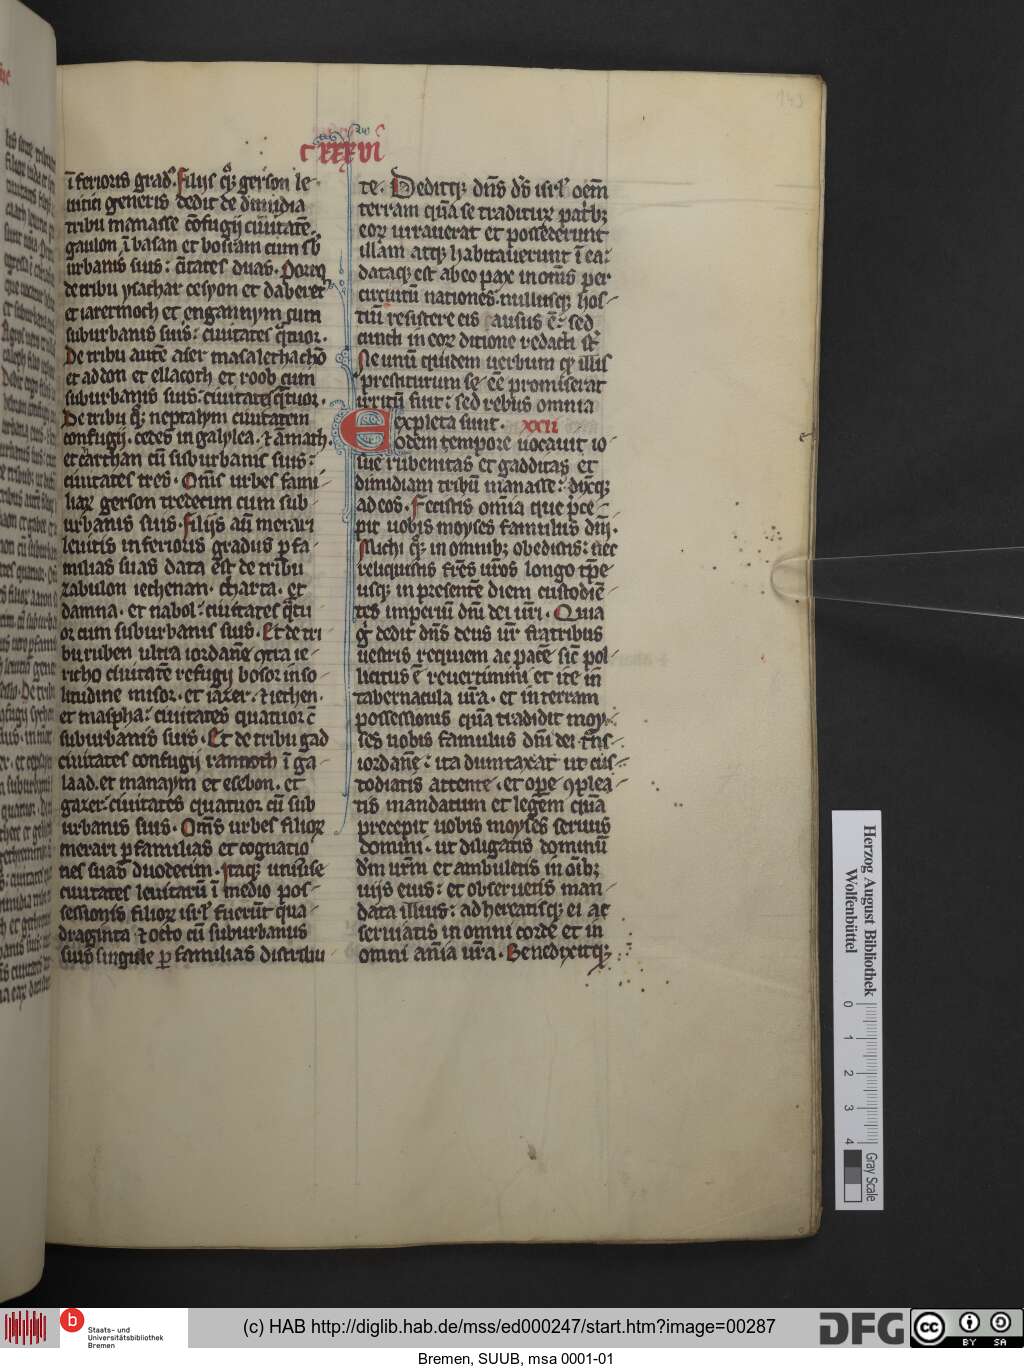 cxxxvi
īferioris grad᷒. Filijs qͦꝫ gerson le
uitici generis dedit de dimidia
tribu manasse cōfugij ciuitatē.
gaulon ī basan et bosram cum sb᷒
urbanis suis: cītates duas. Porro
de tribu ysachar cesyon et daberet
et iaretmoth et engannym cum
suburbanis suis: ciuitates q̄tuor.
De tribu autē aser masalethachō
et addon et ellacoth et roob cum
suburbanis suis: ciuitates q̄tuor.
De tribu qꝫ: neptalym ciuitatem
confugij. cedes in galylea. ⁊ āmath.
et carthan cū suburbanis suis:
ciuitates tres. Om̄s urbes fami
liaꝝ gerson tredecim cum sub
urbanis suis. Filijs aū merari
leuitis inferioris gradus ꝑ fa
milias suas data est de tribu
zabulon iechenan. charta. et
damna. et nabol: ciuitates q̄tu
or cum suburbanis suis. Et de tri
bu ruben ultra iordanē ꝯtra ie
richo ciuitatē refugij bosor in so
litudine misor. et iazer. ⁊ iethen.
et maspha: ciuitates quatuor c̄
suburbanis suis. Et de tribu gad
ciuitates confugij ramoth ī ga
laad. et manaym et esebon. et
gazer: ciuitates quatuor cū sub
urbanis suis. Om̄s urbes filioꝝ
merari ꝑ familias et cognatio
nes suas duodecim. Itaqꝫ uniuse
ciuitates leuitarū ī medio pos
sessionis filioꝝ isrl̄ fuerūt qua
draginta ⁊ octo cū suburbanis
suis singule ꝑ familias distribu
te. Deditqꝫ dn̄s ds̄ isrl̄ oēm
terram quā se traditurꝝ pat̄bꝫ
eoꝝ iurauerat et possederunt
illam atqꝫ habitauerunt ī ea:
dataqꝫ est ab eo pax in om̄s per
circuitū nationes. nullusqꝫ hos
tiū resistere eis ausus ē: sed
cuncti in eoꝝ ditione redacti st̄
Ne unū quidem uerbum qđ illis
prestiturum se eē promiserat
irritū fuit: sed rebus omnia
expleta sunt. xxii
Eodem tempore uocauit io
sue rubenitas et gadditas et
dimidiam tribū manasse: dixqꝫ
ad eos. Fecistis om̄ia que p̄ce
pit uobis moyses famulus dn̄i.
Michi qꝫ: in omnibꝫ obedistis: nec
reliquistis fr̄es ur̄os longo tp̄e
usqꝫ in presentē diem custodiē
tes imperiū dn̄i dei ur̄i. Quia
g̊ dedit dn̄s deus ur̄ fratribus
uestris requiem ac pacē sic̄ pol
licitus ē reuertimini et ite in
tabernacula ur̄a. et in terram
possessionis quā tradidit moy
ses uobis famulus dn̄i dei trās
iordanē: ita dumtaxat ut cus
todiatis attente. et ope ꝯplea
tis mandatum et legem quā
precepit uobis moyses seruus
domini. ut diligatis dominū
dm̄ ur̄m et ambuletis in oībꝫ
uijs eius: et obseruetis man
data illius: adhereatisqꝫ ei ac
seruiatis in omni corde et in
omni an̄ia ur̄a. Benedixitqꝫ
Herzog August Bibliothek
Wolfenbüttel
0 1 2 3 4
Gray Scale
b Staats- und
Universitätsbibliothek
Bremen
(c) HAB http://diglib.hab.de/mss/ed000247/start.htm?image=00287
DFG
cc BY SA
Bremen, SUUB, msa 0001-01